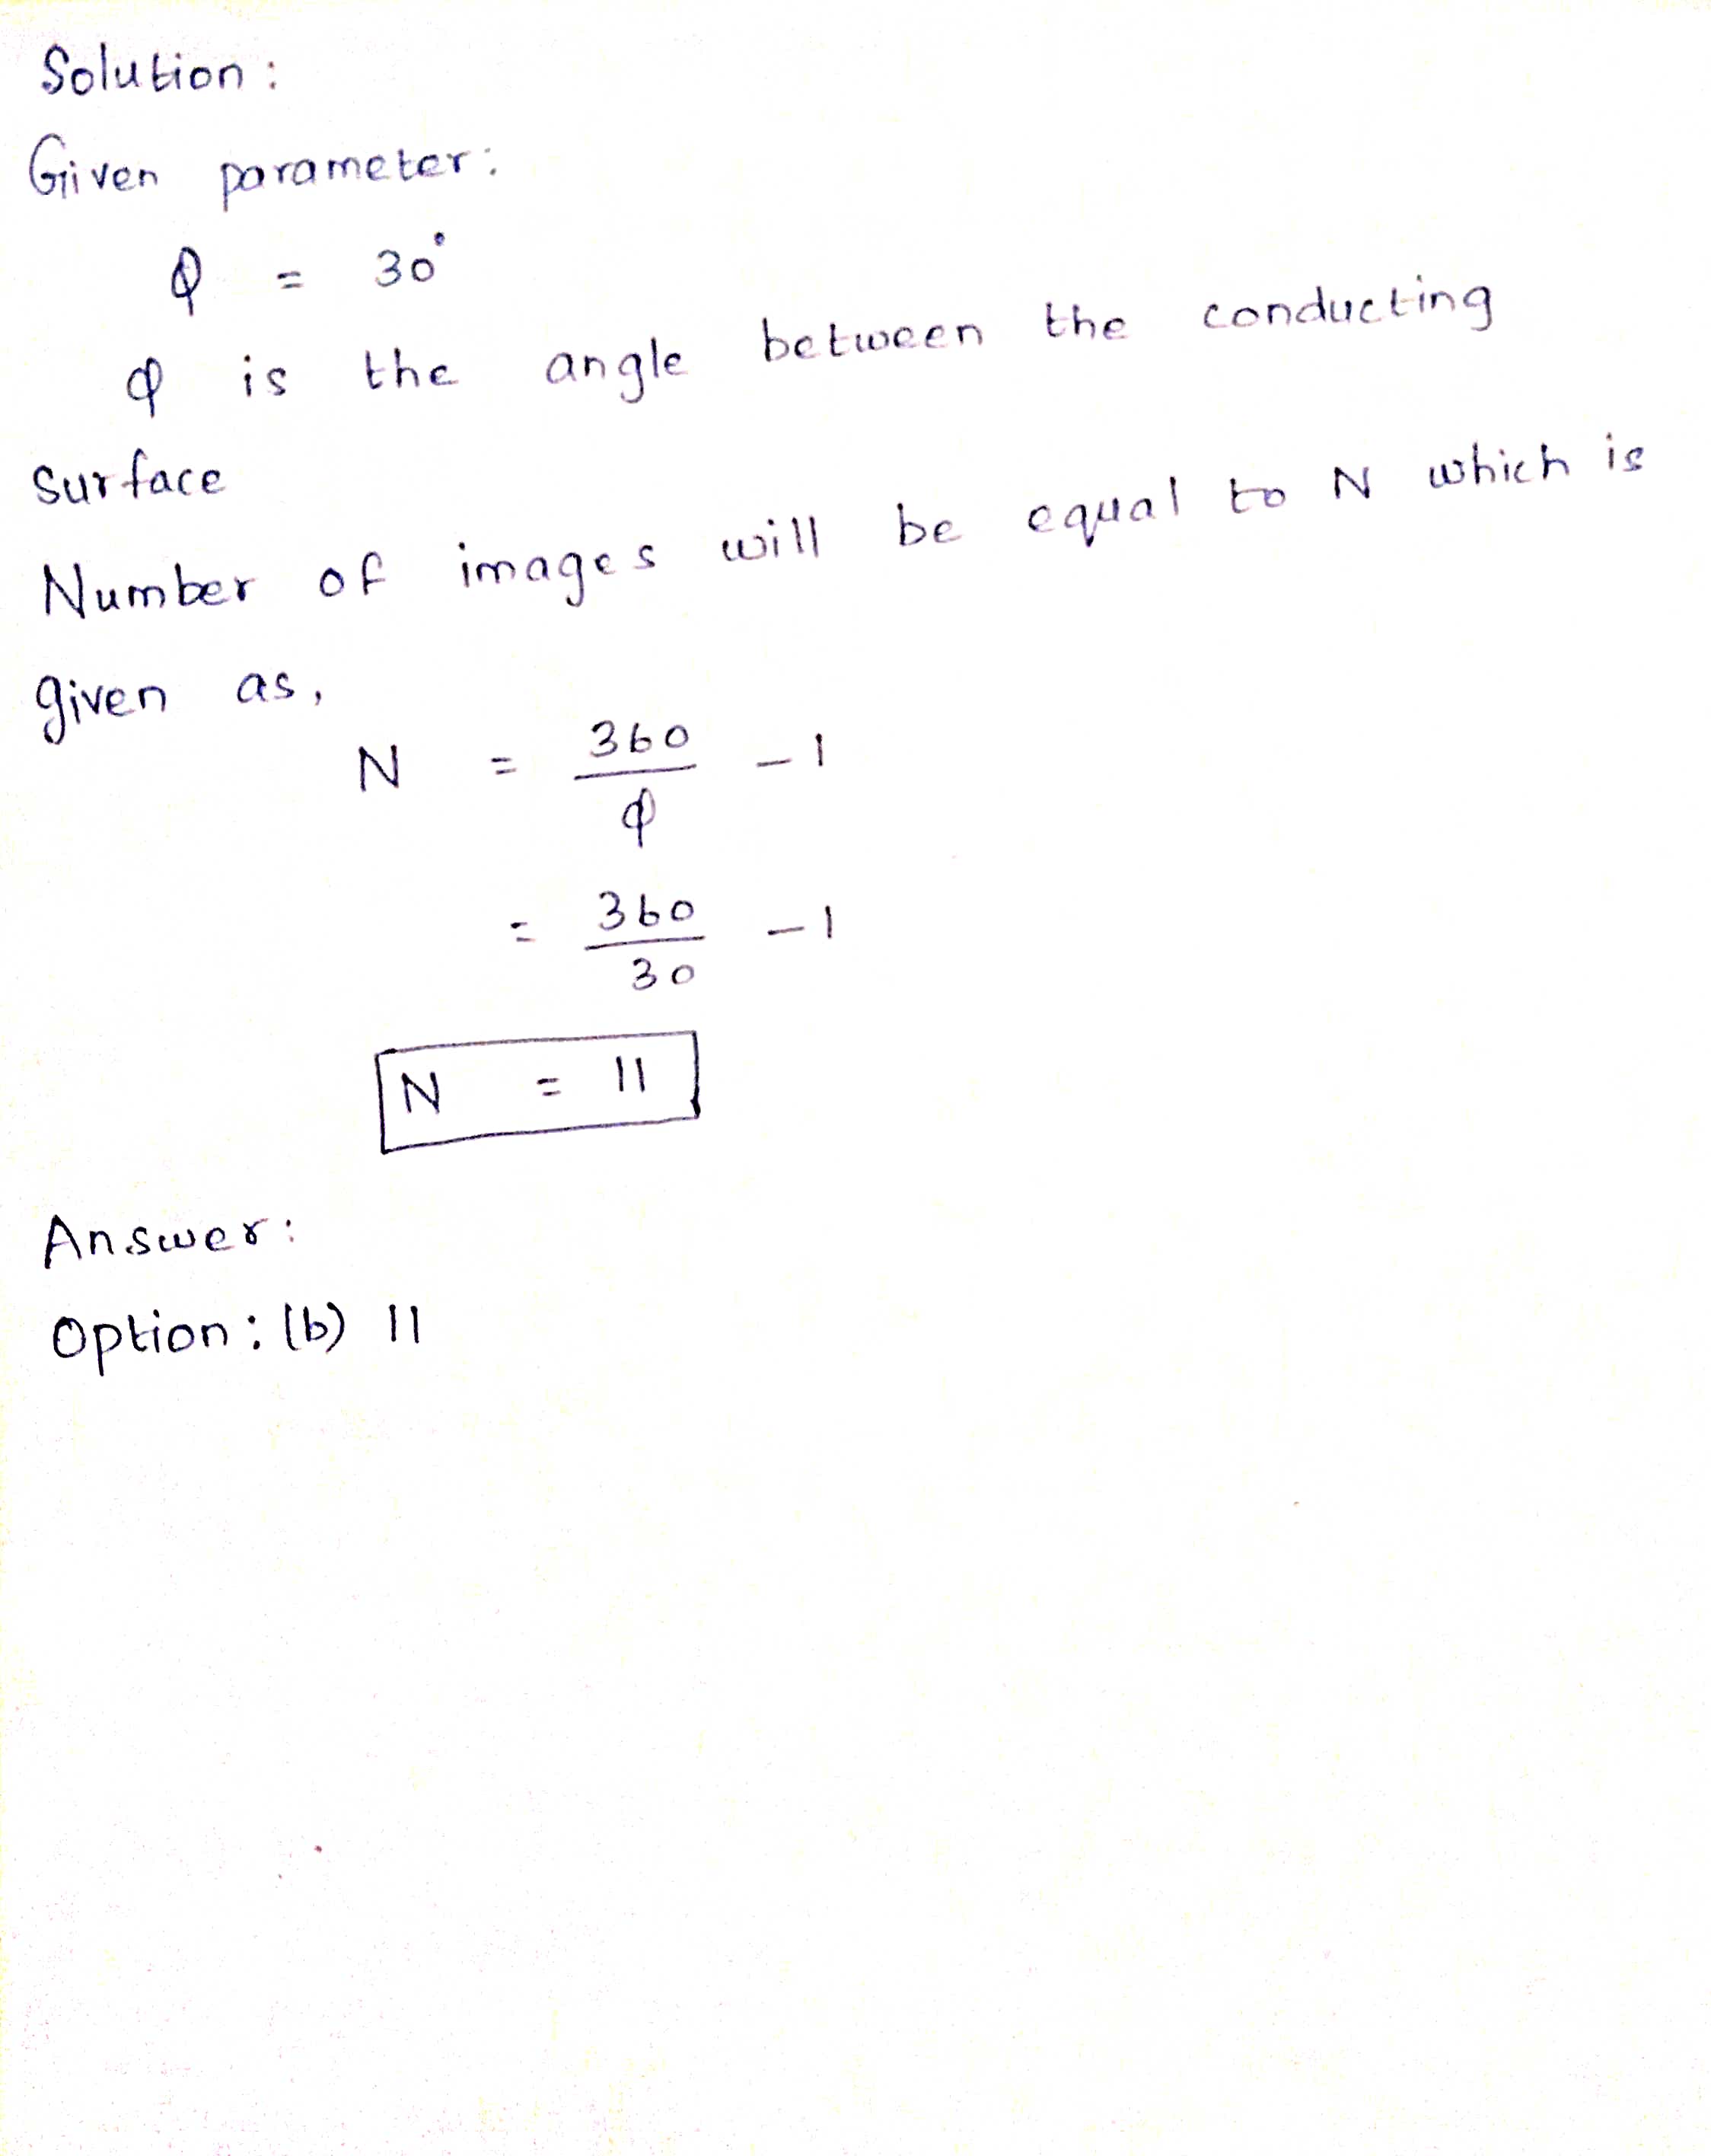 Solution :
Given parameter:
φ = 30°
φ is the angle between the conducting
surface
Number of images will be equal to N which is
given as,
N = 360/φ - 1
= 360/30 - 1
N = 11
Answer:
Option : (b) 11